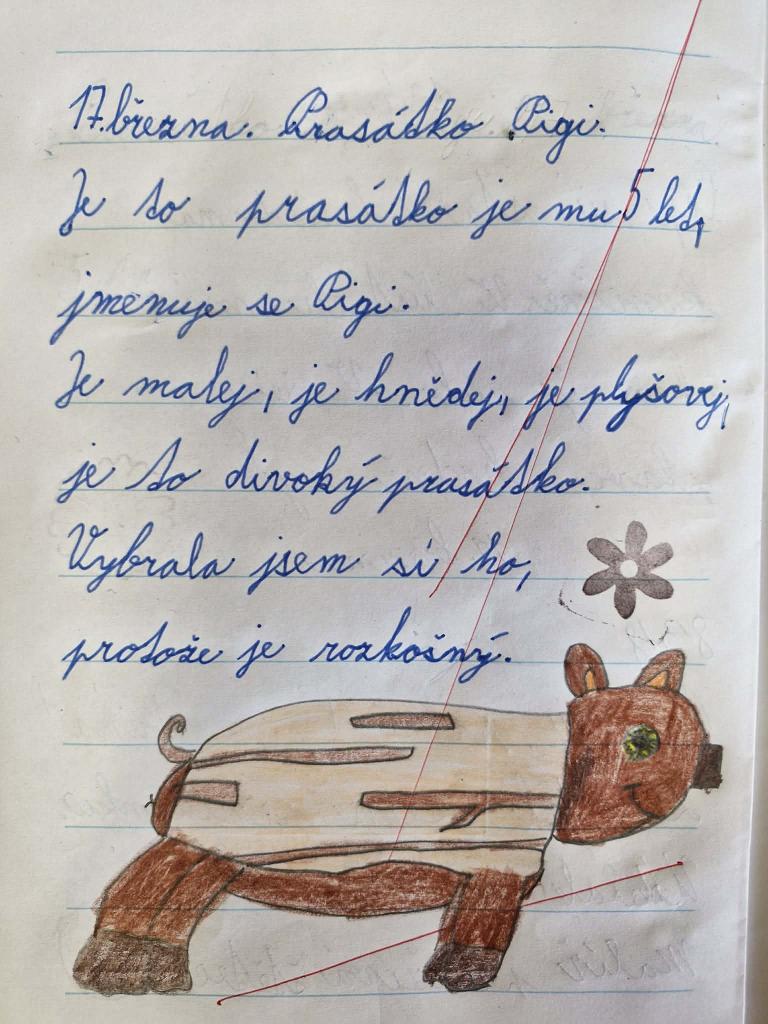 17. března. Prasátko Pigi.
Je to prasátko je mu 5 let,
jmenuje se Pigi.
Je malej, je hnědej, je plyšovej,
je to divoký prasátko.
Vybrala jsem si ho,
protože je rozkošný.